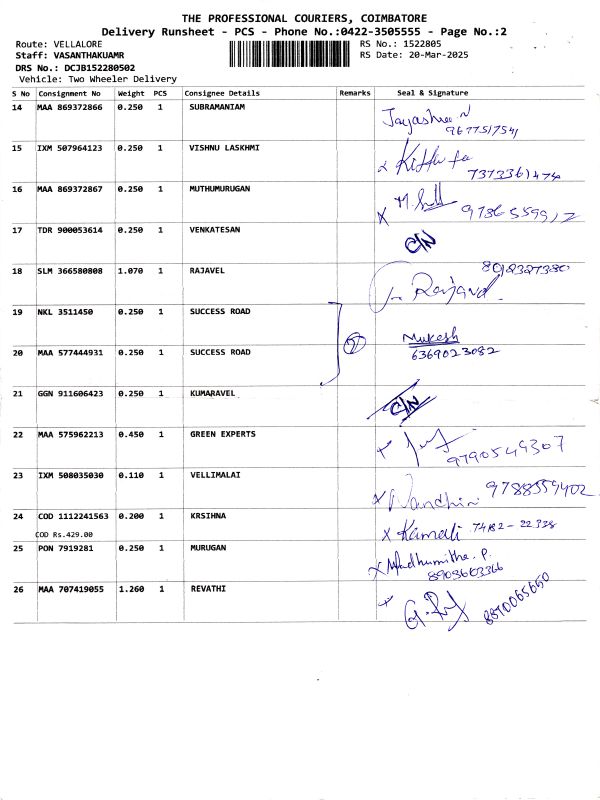 THE PROFESSIONAL COURIERS, COIMBATORE
Delivery Runsheet - PCS - Phone No.:0422-3505555 - Page No.:2
Route: VELLALORE RS No.: 1522805
Staff: VASANTHAKUAMR RS Date: 20-Mar-2025
DRS No.: DCJB152280502
Vehicle: Two Wheeler Delivery
S No Consignment No Weight PCS Consignee Details Remarks Seal & Signature
14 MAA 869372866 0.250 1 SUBRAMANIAM Jayashree N
9677517541
15 IXM 507964123 0.250 1 VISHNU LASKHMI x
7373361474
16 MAA 869372867 0.250 1 MUTHUMURUGAN x
17 TDR 900053614 0.250 1 VENKATESAN C/N
18 SLM 366580808 1.070 1 RAJAVEL
19 NKL 3511450 0.250 1 SUCCESS ROAD Mukesh
20 MAA 577444931 0.250 1 SUCCESS ROAD 2 6369023082
21 GGN 911606423 0.250 1 KUMARAVEL C/N
22 MAA 575962213 0.450 1 GREEN EXPERTS x
9790549307
23 IXM 508035030 0.110 1 VELLIMALAI x Nandhini 9788559402
24 COD 1112241563 0.200 1 KRSIHNA x Kamali 74182-22338
COD Rs.429.00
25 PON 7919281 0.250 1 MURUGAN x Madhumitha. P.
8903603366
26 MAA 707419055 1.260 1 REVATHI x 8870065650